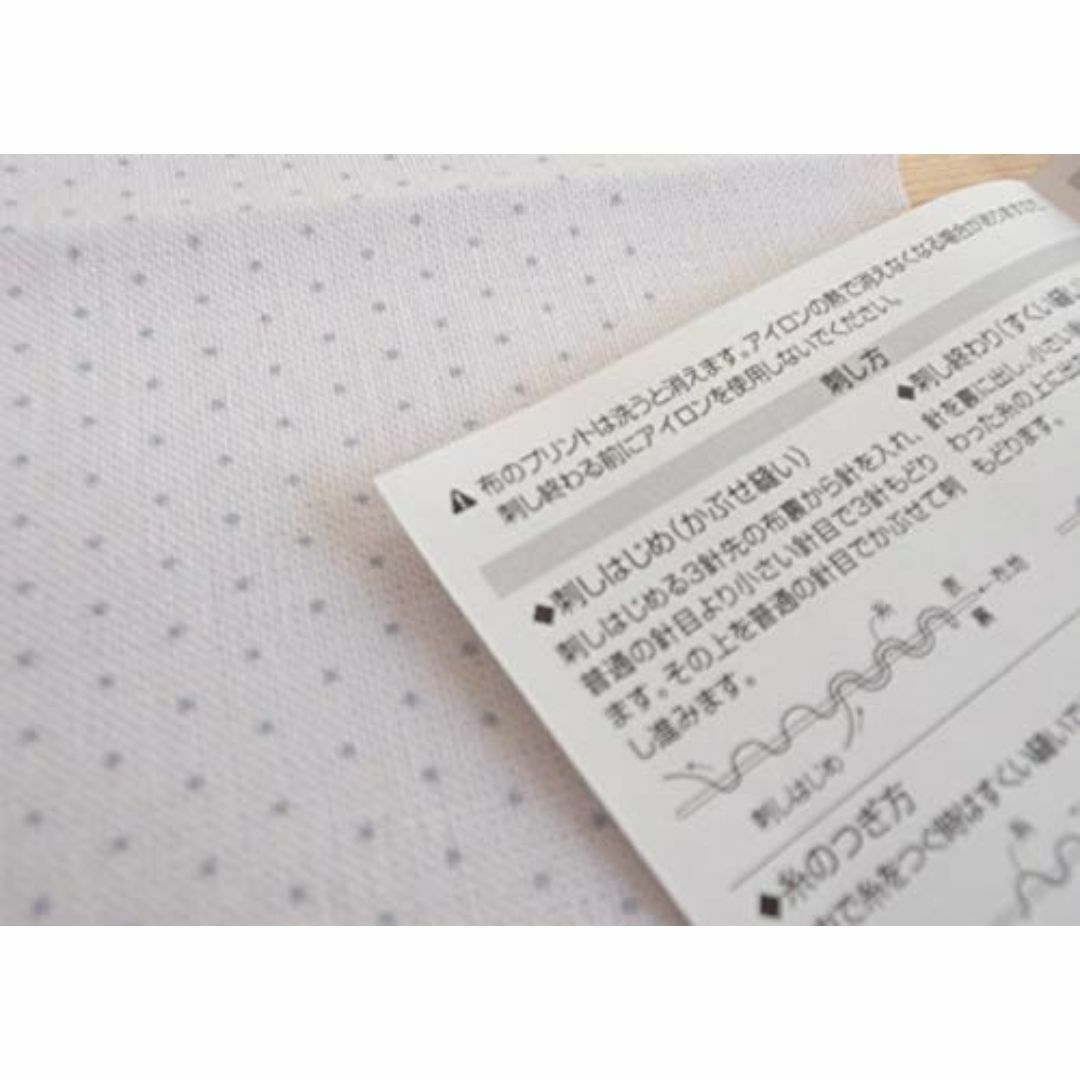 ⚠ 布のプリントは洗うと消えます。アイロンの熱で消えなくなる場合がありますので、
刺し終わる前にアイロンを使用しないでください。
刺し方
◆刺しはじめ(かぶせ縫い)
刺しはじめる3針先の布裏から針を入れ、
普通の針目より小さい針目で3針もどり
ます。その上を普通の針目でかぶせて刺
し進みます。
糸
表
←布地
裏
刺しはじめ
◆刺し終わり(すくい縫い
針を裏に出し、小さい
わった糸の上に出
もどります。
◆糸のつぎ方
で糸をつぐ時はすくい縫いで
糸